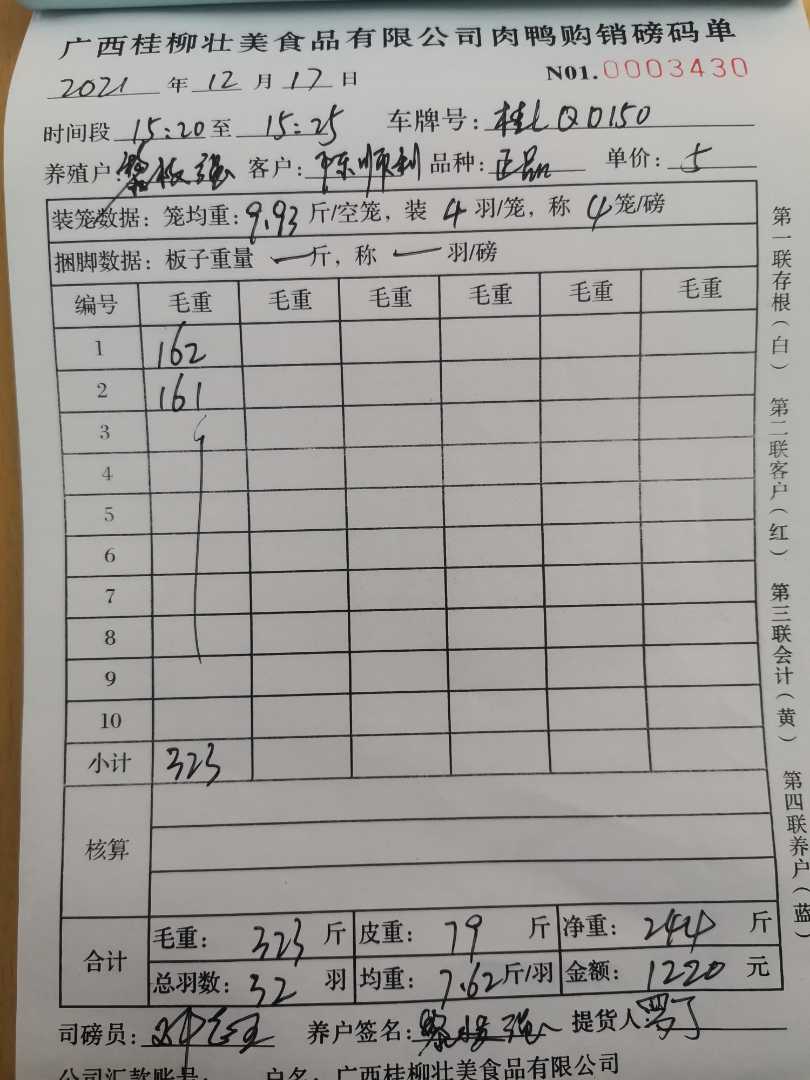 广西桂柳壮美食品有限公司肉鸭购销磅码单
2021 年 12 月 17 日 N01.0003430
时间段 15:20 至 15:25 车牌号: 桂L Q0150
养殖户: 强 客户: 陈顺利 品种: 正品 单价: 5
装笼数据: 笼均重: 9.93 斤/空笼, 装 4 羽/笼, 称 4 笼/磅
捆脚数据: 板子重量 一 斤, 称 一 羽/磅
编号 毛重 毛重 毛重 毛重 毛重 毛重
1 162
2 161
3
4
5
6
7
8
9
10
小计 323
核算
合计 毛重: 323 斤 皮重: 79 斤 净重: 244 斤
总羽数: 32 羽 均重: 7.62 斤/羽 金额: 1220 元
司磅员: 养户签名: 强 提货人:
公司汇款账号: 户名: 广西桂柳壮美食品有限公司
第一联存根(白) 第二联客户(红) 第三联会计(黄) 第四联养户(蓝)